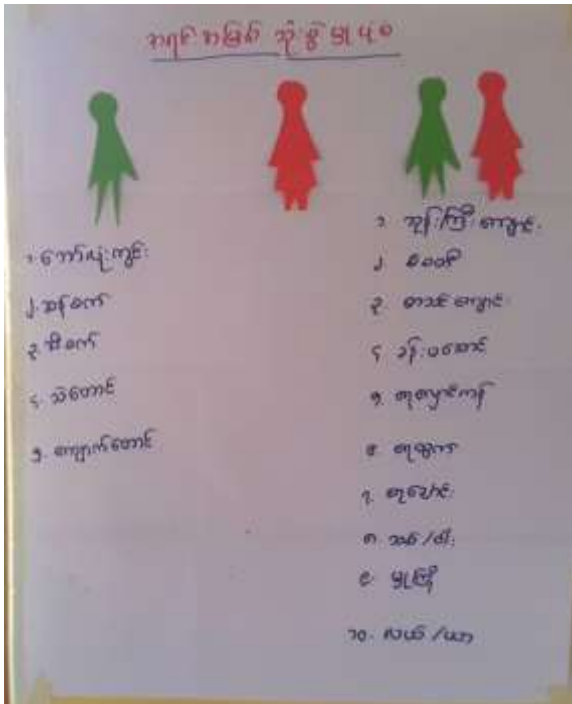 အရင်းအမြစ် သုံးစွဲမှုပုံစံ
၁. ဘော်လုံးကွင်း
၂. ဆန်စက်
၃. ဆီစက်
၄. သဲတောင်
၅. ကျောက်တောင်
၁. ဘုန်းကြီးကျောင်း
၂. စေတီ
၃. စာသင်ကျောင်း
၄.
၅. ရေလှောင်ကန်
၆. ရေတွင်း
၇. ရေမြောင်း
၈. သစ်/ဝါး
၉. မှုကြို
၁၀. လယ်/ယာ